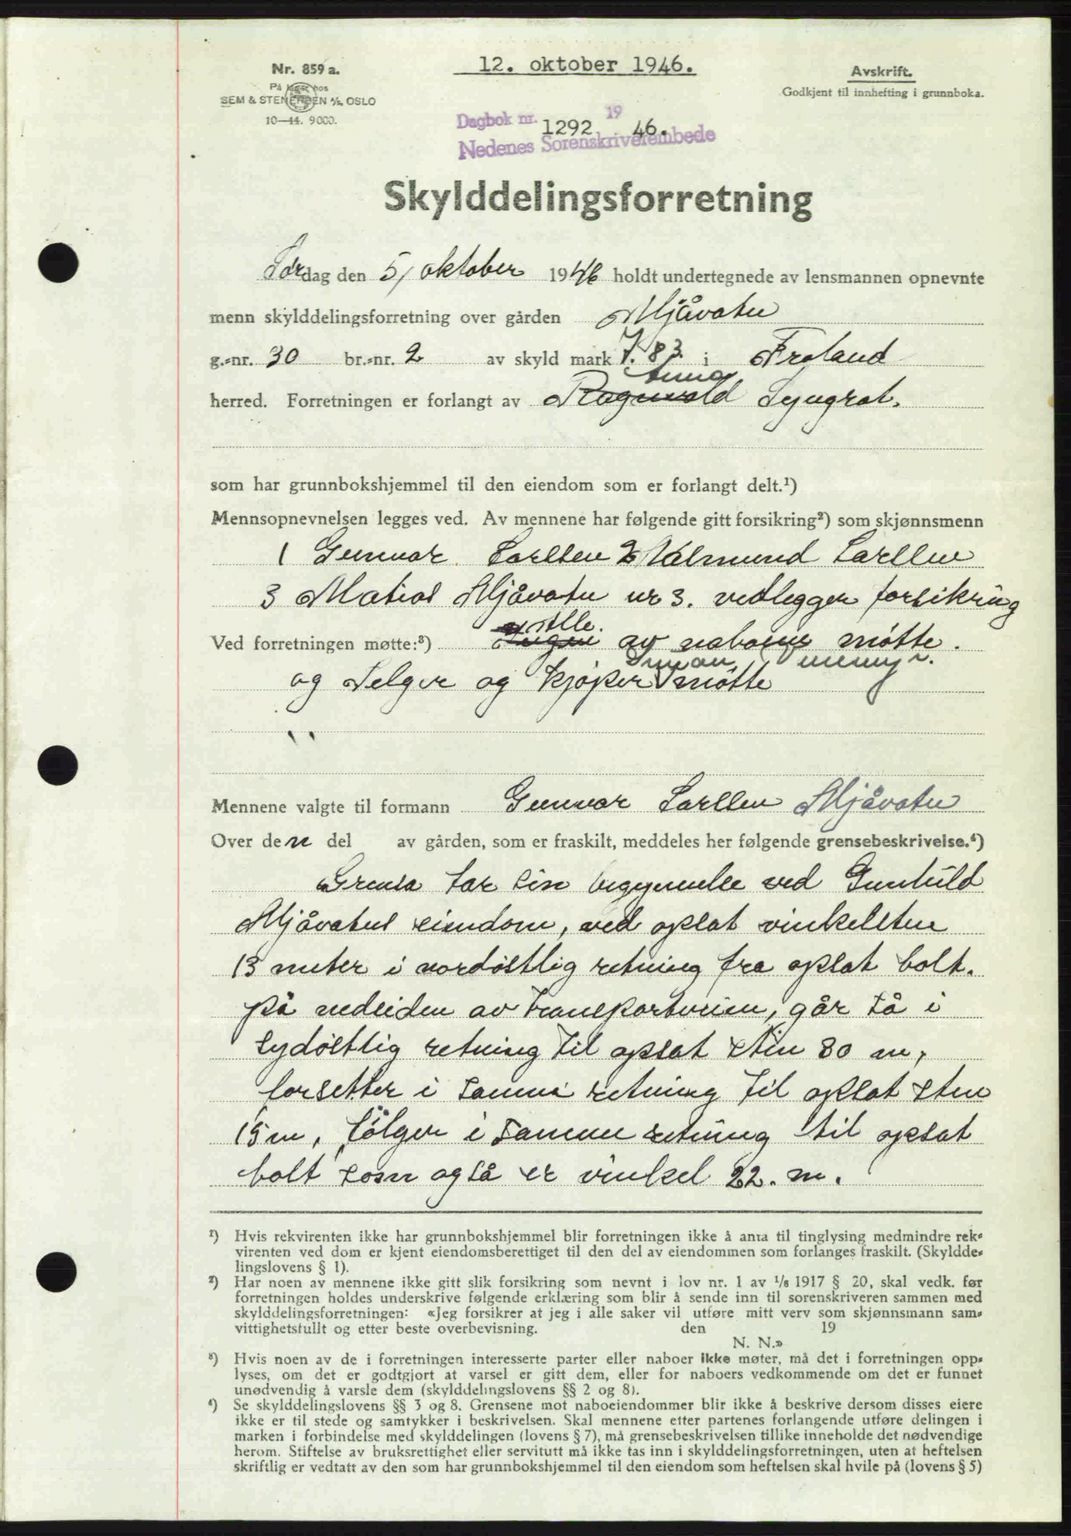 Nr. 859 a.
På lager hos
SEM & STENERSEN A/S, OSLO
10—44. 9000.
12. oktober 1946.
Avskrift.
Godkjent til innhefting i grunnboka.
Dagbok nr. 1292 19 46.
Nedenes Sorenskriverembede
Skylddelingsforretning
Lørdag den 5/ oktober 1946 holdt undertegnede av lensmannen opnevnte
menn skylddelingsforretning over gården Mjåvatn
g.-nr. 30 br.-nr. 2 av skyld mark 7.83 i Froland
Anna
herred. Forretningen er forlangt av Ragnvald Syngrat.
som har grunnbokshjemmel til den eiendom som er forlangt delt.¹)
Mennsopnevnelsen legges ved. Av mennene har følgende gitt forsikring²) som skjønnsmenn
1 Gunvor Larsen 2 Valmund Larssen
3 Matias Mjåvatn nr 3. vedlegger forsikring
Alle.
Ved forretningen møtte:³) Ingen av naboene møtte.
og Selger og kjøper møtte
Mennene valgte til formann Gunvor Larssen Mjåvatn
Over den del av gården, som er fraskilt, meddeles her følgende grensebeskrivelse.⁴)
Grensa tar sin begynnelse ved Gunhild
Mjåvatns eiendom, ved opsat vinkelsten
13 meter i nordøstlig retning fra opsat bolt.
på nedsiden av Transportveien, går så i
sydøstlig retning til opsat sten 80 m,
forsetter i samme retning til opsat sten
15 m, følger i samme retning til opsat
bolt som også er vinkel 22. m.
¹) Hvis rekvirenten ikke har grunnbokshjemmel blir forretningen ikke å anta til tinglysing medmindre rek-
virenten ved dom er kjent eiendomsberettiget til den del av eiendommen som forlanges fraskilt. (Skyldde-
lingslovens § 1).
²) Har noen av mennene ikke gitt slik forsikring som nevnt i lov nr. 1 av 1/6 1917 § 20, skal vedk. før
forretningen holdes underskrive følgende erklæring som blir å sende inn til sorenskriveren sammen med
skylddelingsforretningen: «Jeg forsikrer at jeg i alle saker vil utføre mitt verv som skjønnsmann sam-
vittighetsfullt og etter beste overbevisning. den 19
N. N.»
³) Hvis noen av de i forretningen interesserte parter eller naboer ikke møter, må det i forretningen opp-
lyses, om det er godtgjort at varsel er gitt dem, eller for naboers vedkommende om det er funnet
unødvendig å varsle dem (skylddelingslovens §§ 2 og 8).
⁴) Se skylddelingslovens §§ 3 og 8. Grensene mot naboeiendommer blir ikke å beskrive dersom disses eiere
ikke er til stede og samtykker i beskrivelsen. Skal mennene etter partenes forlangende utføre delingen i
marken i forbindelse med skylddelingen (lovens § 7), må grensebeskrivelsen tillike inneholde det nødvendige
herom. Stiftelse av bruksrettighet eller servitutt må ikke tas inn i skylddelingsforretningen, uten at heftelsen
skriftlig er vedtatt av den som har grunnbokshjemmel til den eiendom som heftelsen skal hvile på (lovens § 5)